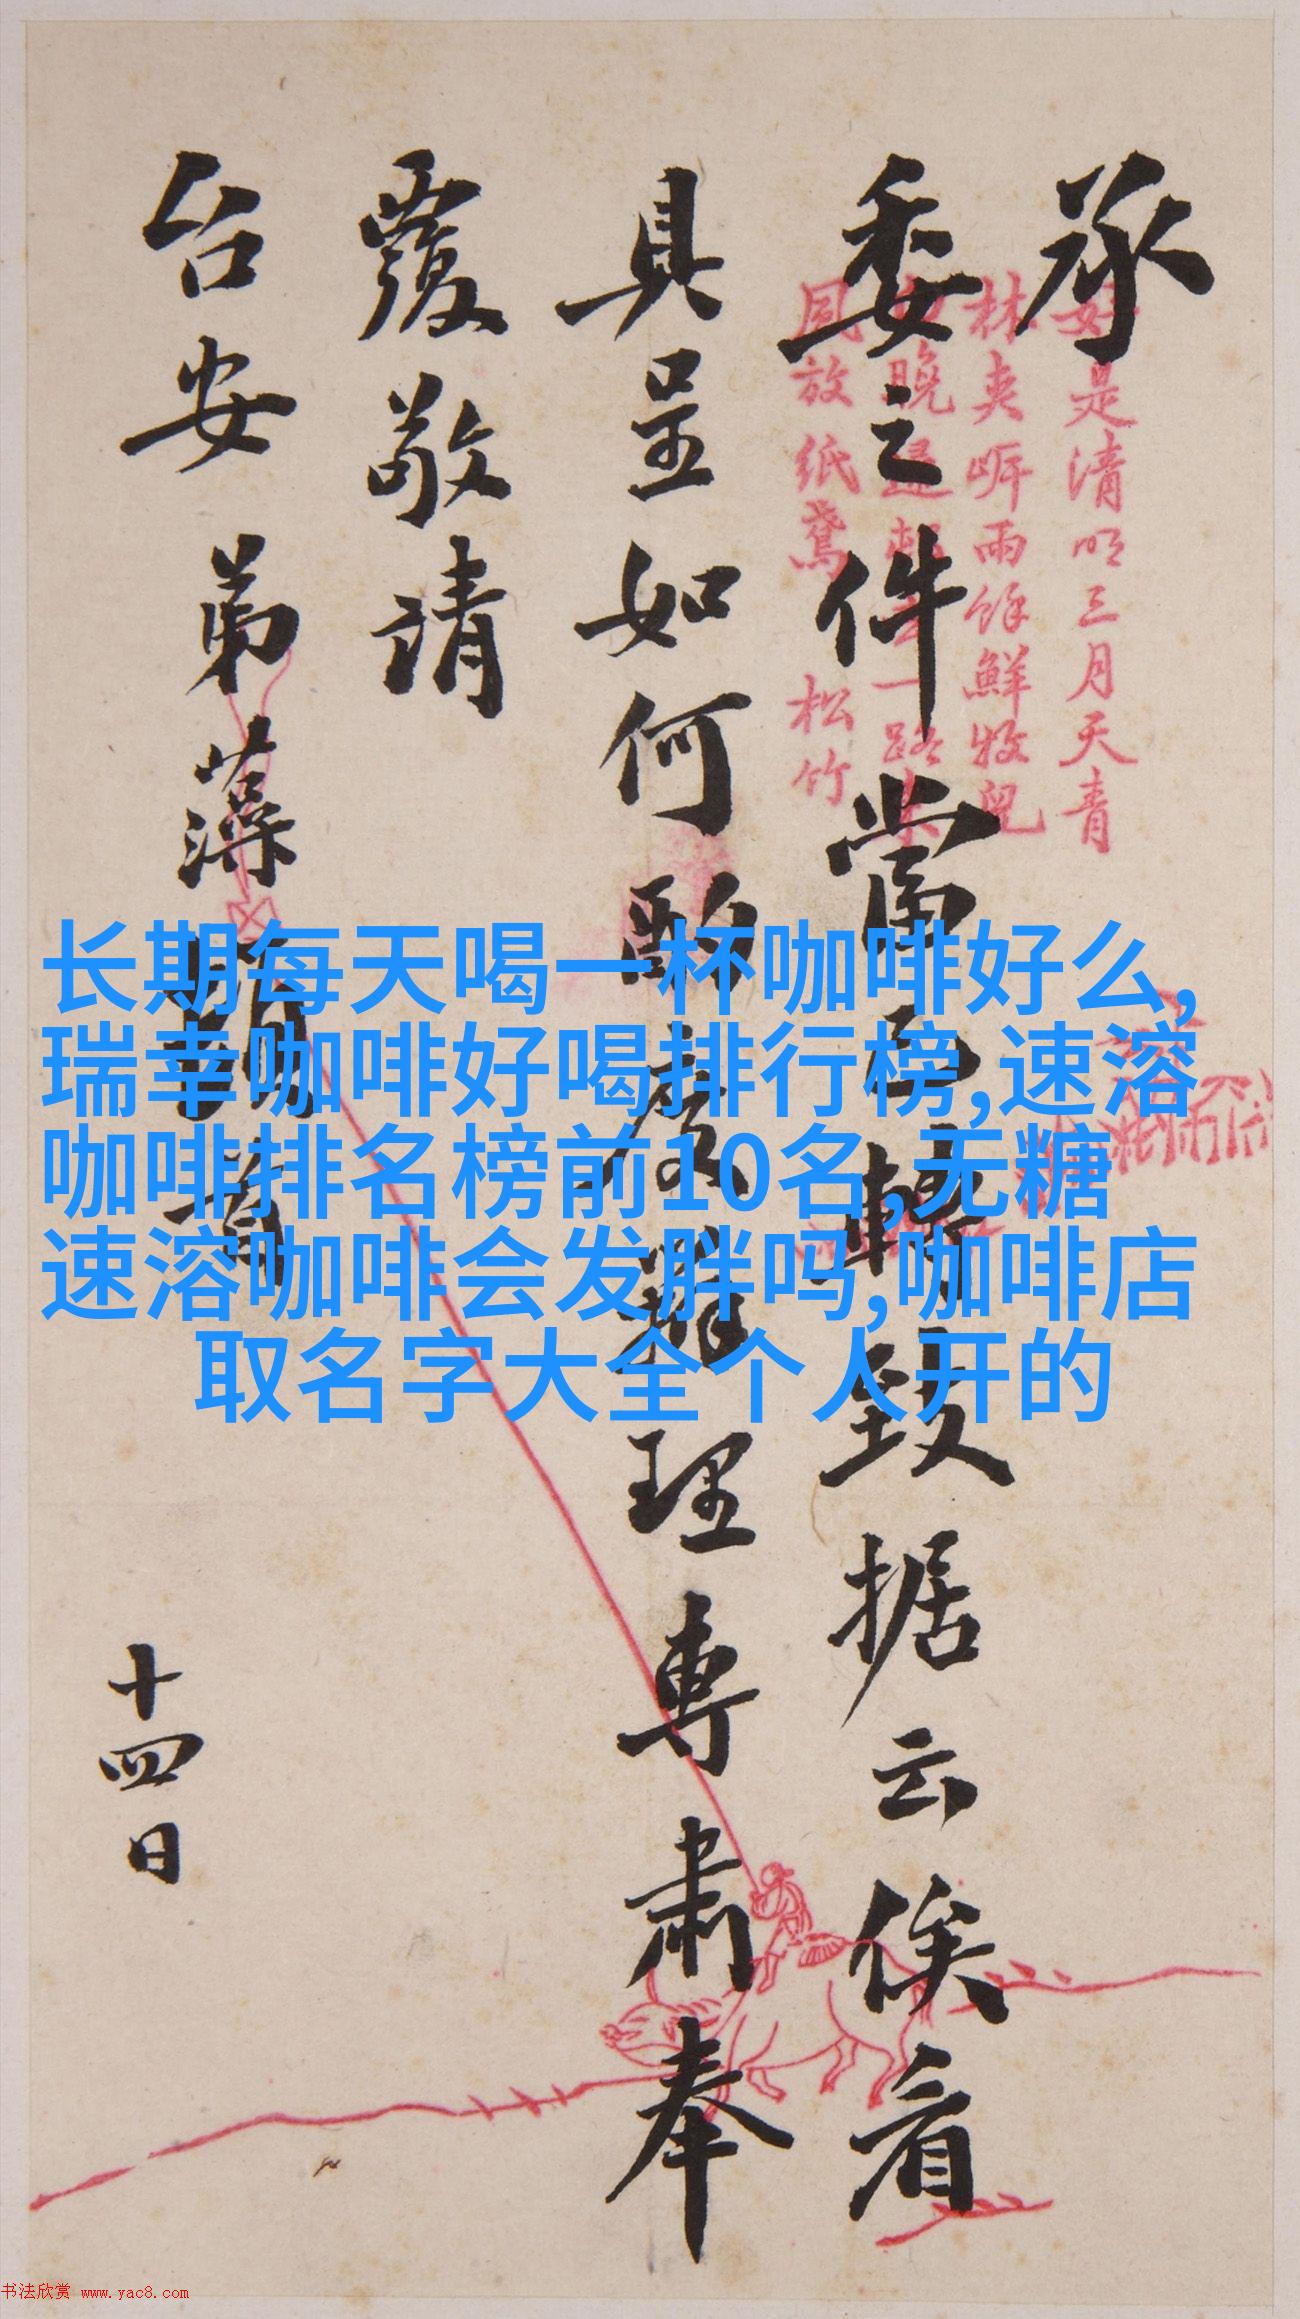 承
委之件當已轉致据云俟看
具呈如何酌度辦理專肅奉
覆敬請
台安 弟藻頓首
十四日
好是清明三月天青
林夹岍雨馀鮮牧兒
晚一路
風放紙鳶 松竹
长期每天喝一杯咖啡好么,
瑞幸咖啡好喝排行榜,速溶
咖啡排名榜前10名,无糖
速溶咖啡会发胖吗,咖啡店
取名字大全个人开的
书法欣赏 www.yac8.com